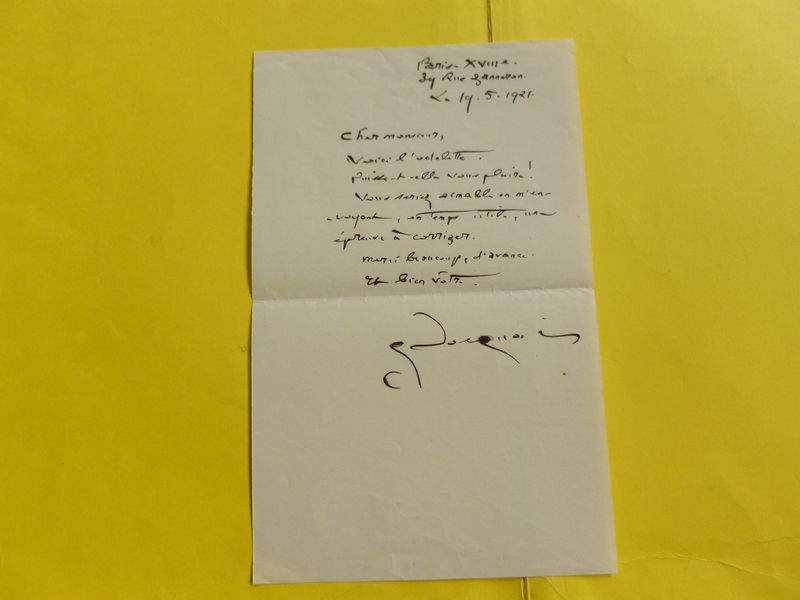 Paris-XVIIIe.
39 Rue Ganneron.
Le 19.5.1921.
Cher monsieur,
Voici l'odelette.
Puisse-t-elle vous plaire!
Vous seriez aimable en m'en-
-voyant, en temps utile, une
épreuve à corriger.
Merci beaucoup, d'avance.
Et bien vôtre.